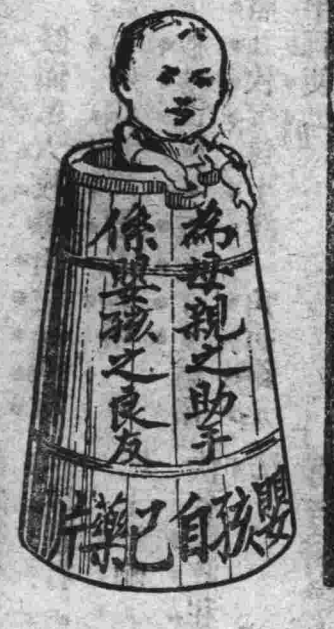 為母親之助手
係嬰孩之良友
嬰孩自己藥片